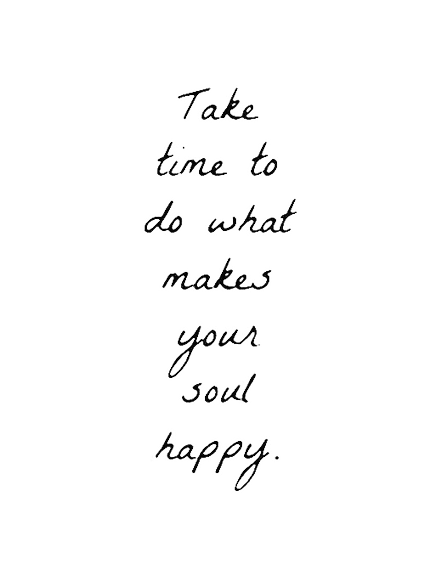 Take
time to
do what
makes
your
soul
happy.